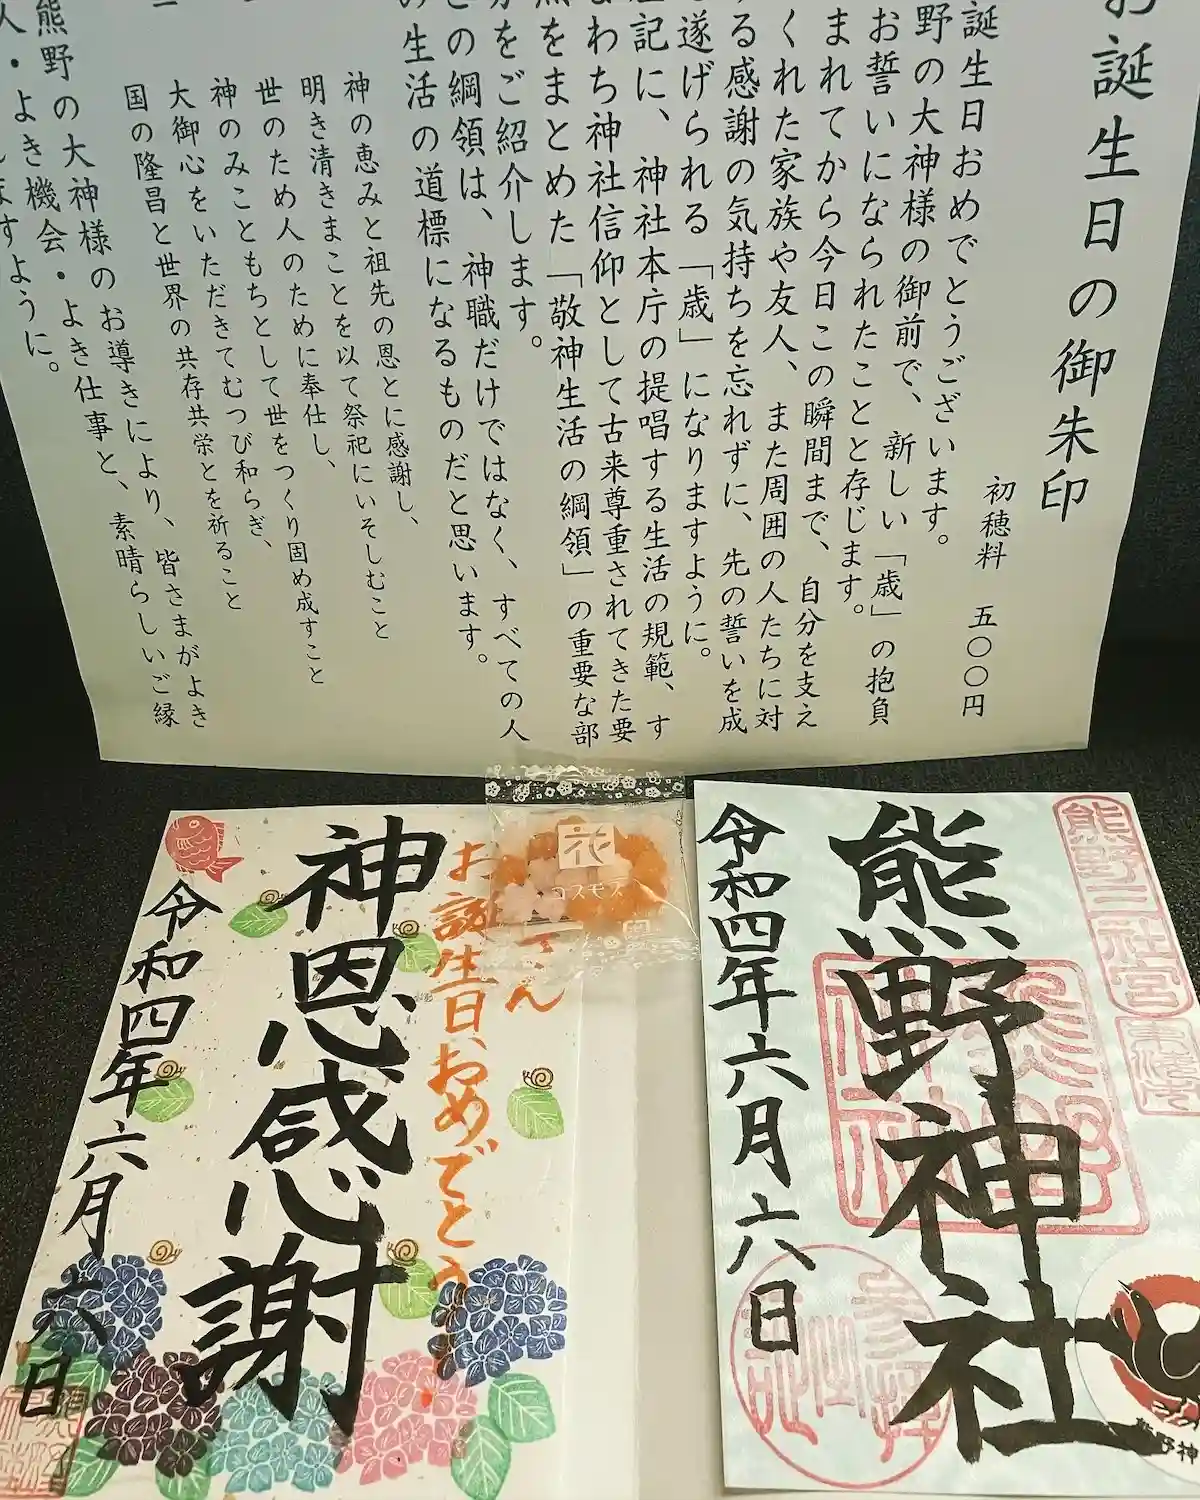 お誕生日の御朱印
初穂料　五〇〇円
誕生日おめでとうございます。
野の大神様の御前で、新しい「歳」の抱負
お誓いになられたことと存じます。
まれてから今日この瞬間まで、自分を支え
くれた家族や友人、また周囲の人たちに対
る感謝の気持ちを忘れずに、先の誓いを成
遂げられる「歳」になりますように。
記に、神社本庁の提唱する生活の規範、す
わち神社信仰として古来尊重されてきた要
をまとめた「敬神生活の綱領」の重要な部
をご紹介します。
の綱領は、神職だけではなく、すべての人
の生活の道標になるものだと思います。
神の恵みと祖先の恩とに感謝し、
明き清きまことを以て祭祀にいそしむこと
世のため人のために奉仕し、
神のみこともちとして世をつくり固め成すこと
大御心をいただきてむつび和らぎ、
国の隆昌と世界の共存共栄とを祈ること
熊野の大神様のお導きにより、皆さまがよき
人・よき機会・よき仕事と、素晴らしいご縁
ますように。
花
コスモス
さん
お誕生日おめでとう
神恩感謝
令和四年六月六日
熊野三社宮
熊野神社
令和四年六月六日
熊野神